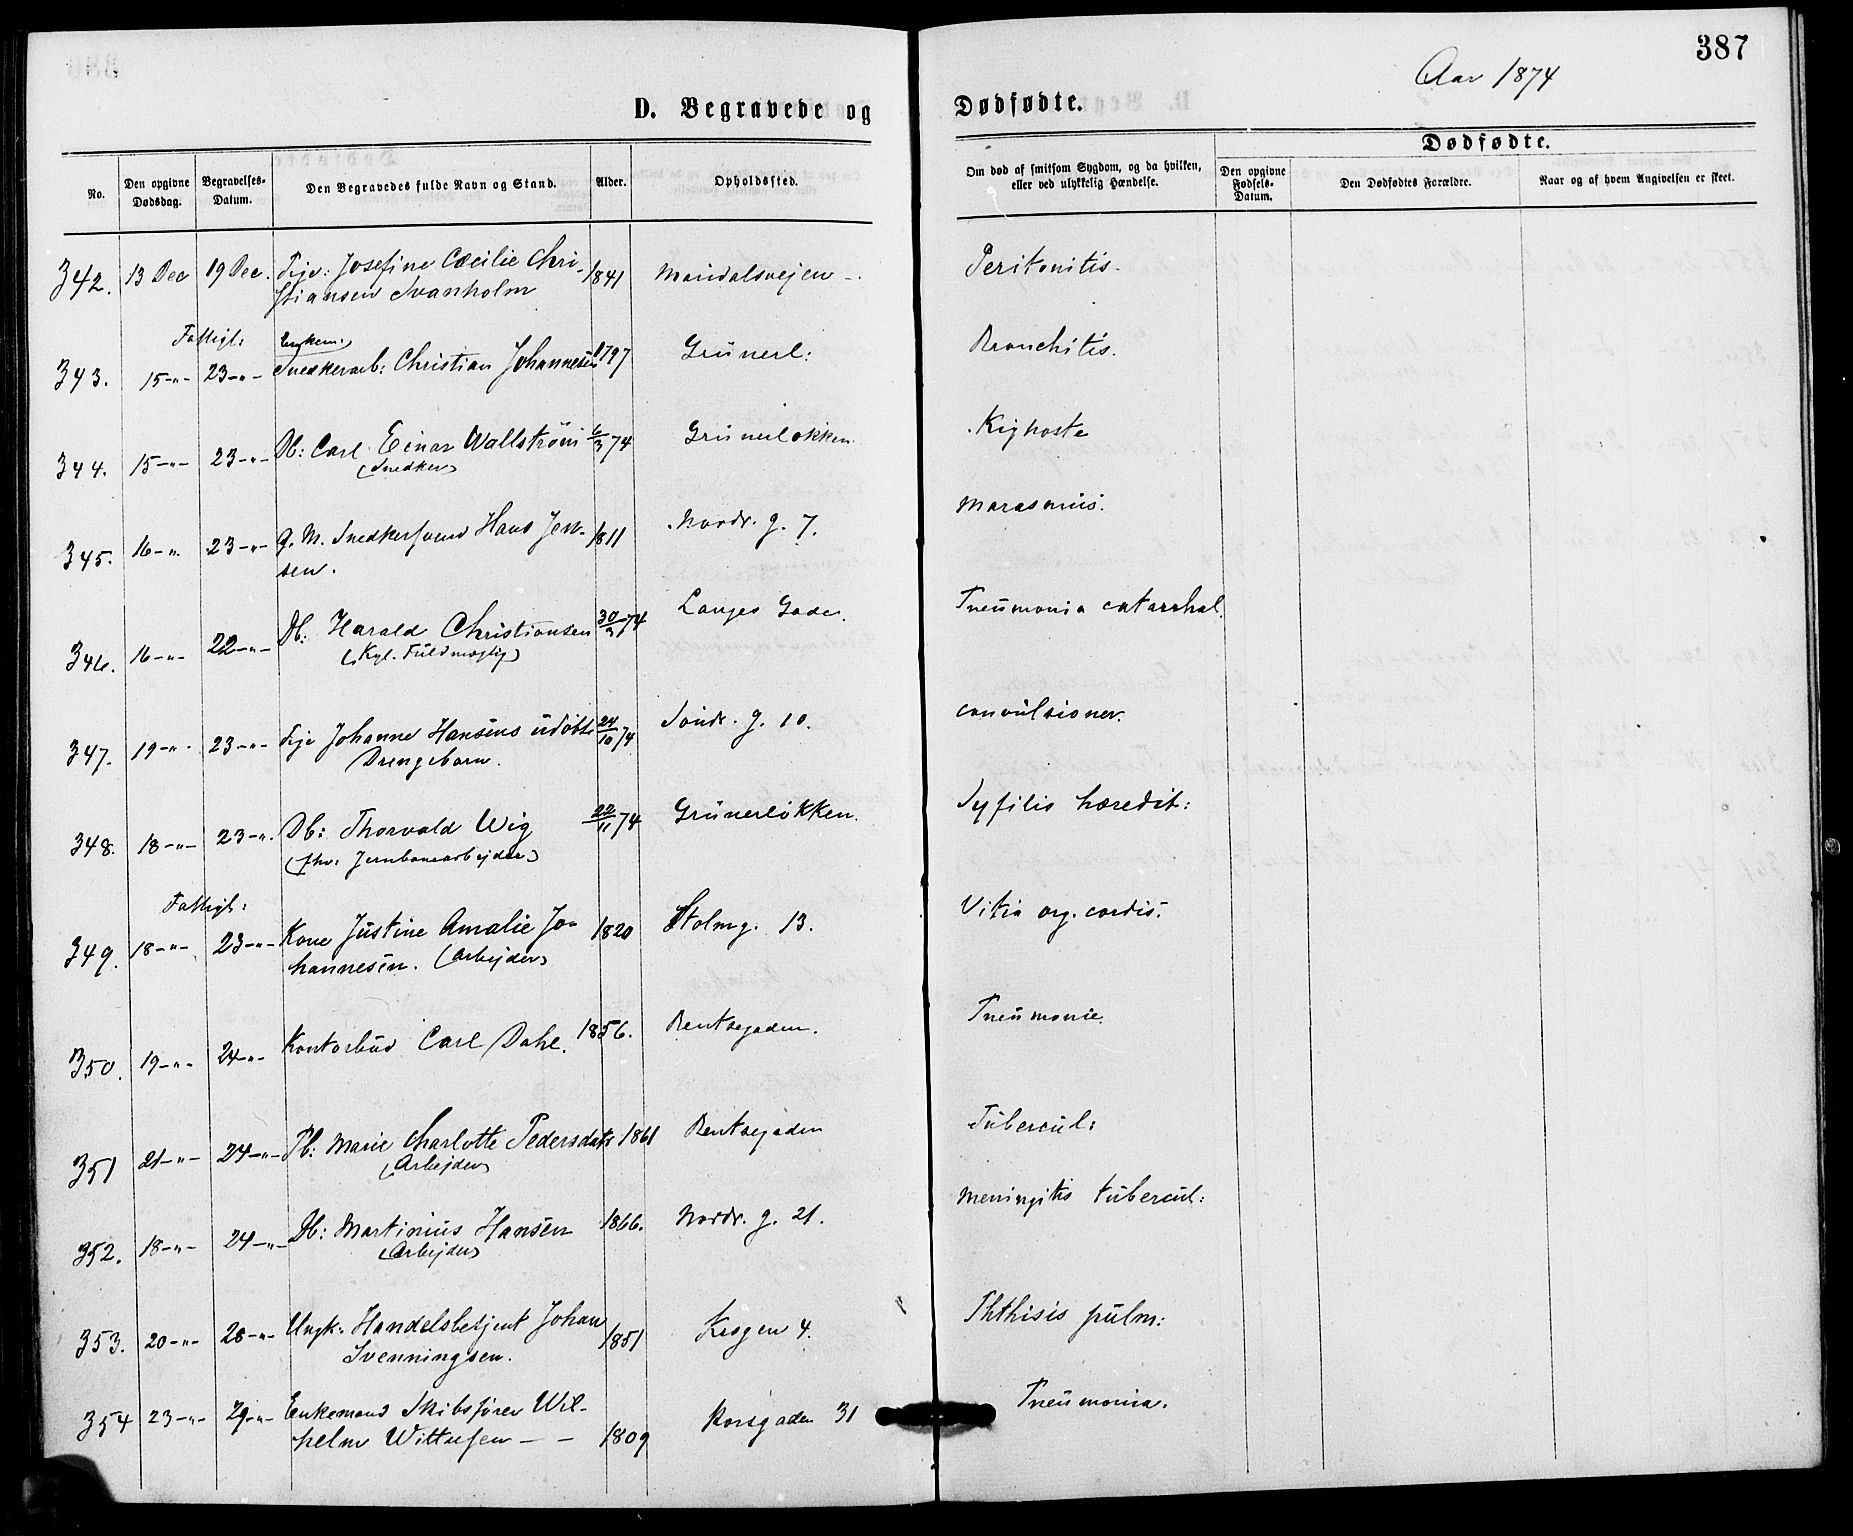 387
Aar 1874
D. Begravede og Dødfødte.
No. Den opgivne Dødsdag. Begravelses-Datum. Den Begravedes fulde Navn og Stand. Alder. Opholdssted. Om død af smitsom Sygdom, og da hvilken, eller ved ulykkelig Hændelse. Dødfødte. Den opgivne Fødsels-Datum. Den Dødfødtes Forældre. Naar og af hvem Angivelsen er skeet.
342. 13 Dec 19 Dec. Pige: Josefine Cæcilie Chri- 1841 Maridalsvejen -. Peritonitis.
stiansen Svanholm
Fattigl: Enkem.
343. 15-"- 23-"- Snedkerarb: Christian Johannesen 1797 Grünerl: Bronchitis.
344. 15-"- 23-"- Db: Carl Einar Wallström 6/3 74 Grünerløkken. Kighoste
(Snedker)
345. 16-"- 23-"- g. M. Snedkersvend Hans Jen- 1811 Nordr. g. 7. Marasmus.
sen.
346. 16-"- 22-"- Db: Harald Christiansen 30/3 74 Langes Gade. Pneumonia catarrhal.
(Kgl. Fuldmægtig)
347. 19-"- 23-"- Pige Johanne Hansens udøbte 24/10 74 Søndr. g. 10. convulsioner.
Drengebarn.
348. 18-"- 23-"- Db: Thorvald Wig 22/11 74 Grünerløkken. Syfilis hæredit:
(fhv: Jernbanearbejder)
Fattigl:
349. 18-"- 23-"- Kone Justine Amalie Jo- 1820 Holmg. 13. Vitia org. cordis.
hannesen. (Arbejder)
350. 19-"- 24-"- Kontorbud Carl Dahl. 1856. Bentsegaden. Pneumonie.
351 21-"- 24-"- Pb: Marie Charlotte Pedersdatr 1861 Bentsegaden Tubercul:
(Arbejder)
352. 18-"- 24-"- Db: Martinius Hansen 1866. Nordr. g. 21. Meningitis tubercul:
(Arbejder)
353. 20-"- 28-"- Ungk: Handelsbetjent Johan 1851 Krogen 4. Phthisis pulm:
Svenningsen.
354 23-"- 29-"- Enkemand Skibsfører Wil- 1809 Korsgaden 31 Pneumonia.
helm Wittusen - -